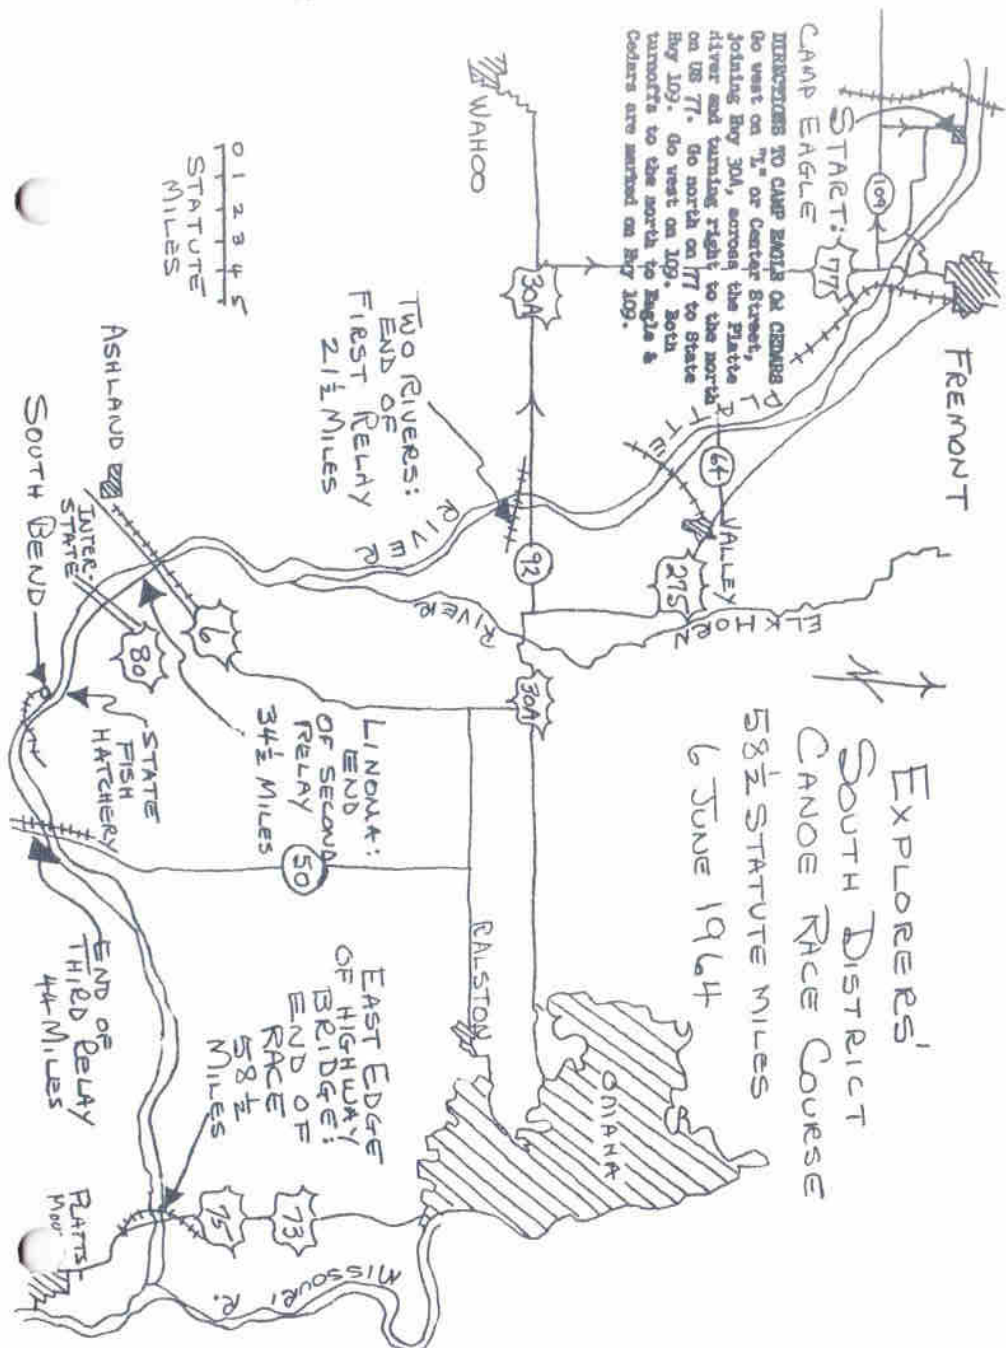 EXPLORERS'
SOUTH DISTRICT
CANOE RACE COURSE
58½ STATUTE MILES
6 JUNE 1964
FREMONT
START:
CAMP EAGLE
DIRECTIONS TO CAMP EAGLE OR CEDARS
Go west on "L" or Center Street,
joining Hwy 30A, across the Platte
river and turning right to the north
on US 77. Go north on 77 to State
Hwy 109. Go west on 109. Both
turnoffs to the north to Eagle &
Cedars are marked on Hwy 109.
109
77
PLATTE
RIVER
64
VALLEY
275
ELKHORN
RIVER
WAHOO
30A
92
30A
TWO RIVERS:
END OF
FIRST RELAY
21½ MILES
0 1 2 3 4 5
STATUTE
MILES
ASHLAND
6
LINOMA:
END
OF SECOND
RELAY
34½ MILES
INTER-
STATE
80
SOUTH BEND
STATE
FISH
HATCHERY
50
RALSTON
OMAHA
END OF
THIRD RELAY
44 MILES
EAST EDGE
OF HIGHWAY
BRIDGE:
END OF
RACE
58½
MILES
73
75
MISSOURI R.
PLATTS-
MOU